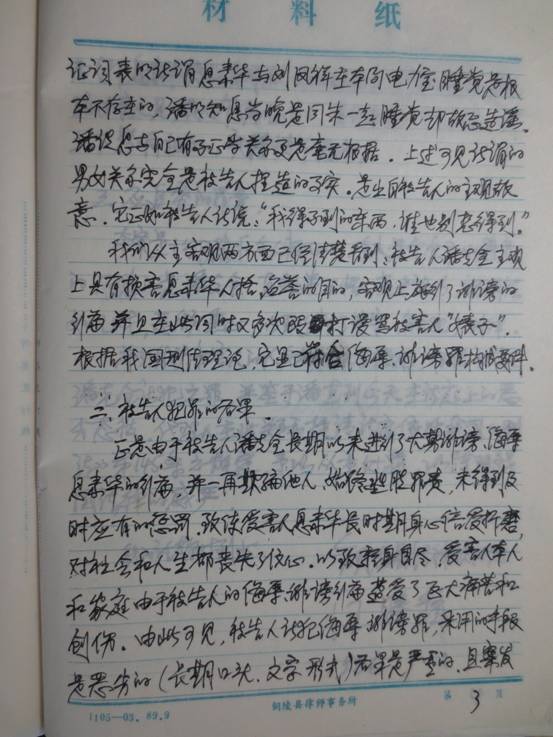 材 料 纸
证词表明所谓息素华与刘凤祥在本局电力室睡觉是根
本不存在的,潘明知息当晚是同朱一起睡觉却故意造谣。
潘说息与自己有了关系更是毫无根据。上述可见所谓的
男女关系完全是被告人捏造的事实,是出自被告人的主观故
意。它正如被告人所说:“我得不到的东西,谁也别想得到。”
我们从主客观两方面已经清楚看到,被告人潘 全主观
上具有损害息素华人格、名誉的目的,客观上施行了诽谤的
行为并且在此同时又多次殴打谩骂被害人“婊子”。
根据我国刑法理论,它是已符合侮辱、诽谤罪构成要件。
二、被告人犯罪的后果。
正是由于被告人潘 全长期以来进行了大肆诽谤、侮辱
息素华的行为,并一再欺骗他人,始终逃脱罪责,未得到及
时应有的惩罚,致使受害人息素华长时期身心倍受折磨,
对社会和人生都丧失了信心,以致轻身自尽,受害人本人
和家庭由于被告人的侮辱、诽谤行为遭受了巨大痛苦和
创伤。由此可见,被告人所犯侮辱诽谤罪,采用的手段
是恶劣的(长期口头、文字形式)后果是严重的,且案发
1105—03. 89.9
铜陵县律师事务所
第 3 页